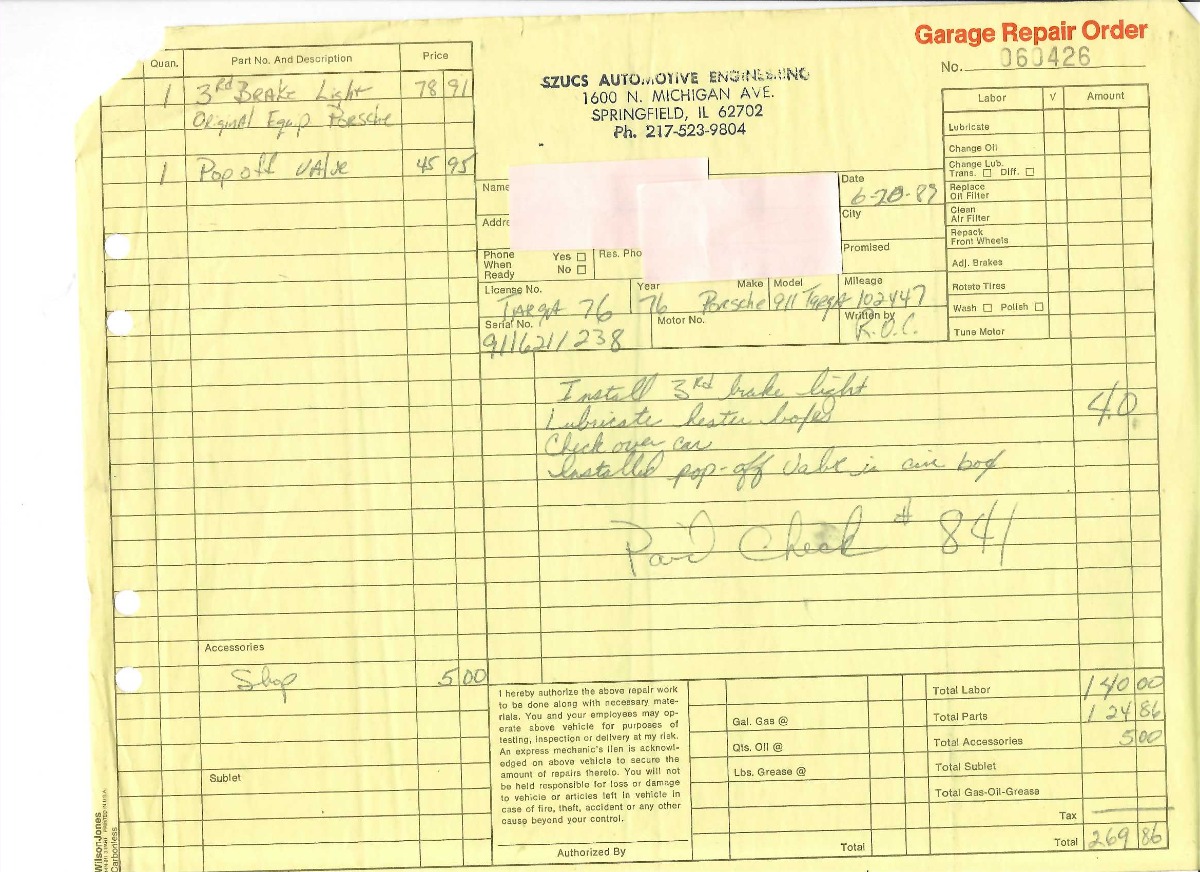 Garage Repair Order
No. 060426
SZUCS AUTOMOTIVE ENGINEERING
1600 N. MICHIGAN AVE.
SPRINGFIELD, IL 62702
Ph. 217-523-9804
Quan. Part No. And Description Price
1 3rd Brake Light 78 91
Original Equip Porsche
1 Pop off valve 45 95
Accessories
Shop 5 00
Sublet
Name
Addre
Date
6-20-89
City
Phone When Ready Yes No
Res. Pho
Promised
License No. Year Make Model Mileage
TARGA 76 76 Porsche 911 Targa 102447
Serial No. Motor No. Written by
9116211238 K.O.C.
Labor √ Amount
Lubricate
Change Oil
Change Lub.
Trans. Diff.
Replace
Oil Filter
Clean
Air Filter
Repack
Front Wheels
Adj. Brakes
Rotate Tires
Wash Polish
Tune Motor
Install 3rd brake light
Lubricate heater boxes
Check over car
Installed pop-off valve in air box
Paid Check # 841
I hereby authorize the above repair work
to be done along with necessary mate-
rials. You and your employees may op-
erate above vehicle for purposes of
testing, inspection or delivery at my risk.
An express mechanic's lien is acknowl-
edged on above vehicle to secure the
amount of repairs thereto. You will not
be held responsible for loss or damage
to vehicle or articles left in vehicle in
case of fire, theft, accident or any other
cause beyond your control.
Authorized By
Gal. Gas @
Qts. Oil @
Lbs. Grease @
Total
Total Labor 140 00
Total Parts 124 86
Total Accessories 5 00
Total Sublet
Total Gas-Oil-Grease
Tax
Total 269 86
Wilson-Jones
Carbonless